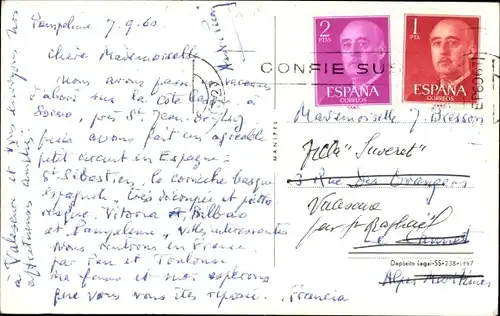 Pampelune 7.9.60
Chère Mademoiselle
Nous avons passé nos vacances
d'abord sur la côte basque à
Socoa, près St Jean de Luz
puis avons fait un agréable
petit circuit en Espagne :
St Sébastien, la corniche basque
espagnole très découpée et pitto
resque, Vitoria et Bilbao
et Pampelune, villes intéressantes
Nous rentrons en France
par Pau et Toulouse
Ma femme et moi espérons
que vous vous êtes reposée.
à Valescure et vous envoyons nos
affectueuses amitiés
2
PTAS
ESPAÑA
CORREOS
1
PTA
ESPAÑA
CORREOS
CONFIE SUS
MANIPEL
Mademoiselle J. Bresson
Villa "Suveret"
3 Rue des Orangers
Valescure
par St Raphaël
Le Cannet
Depósito Legal-SS-238-1957
Alpes Maritimes
Francia